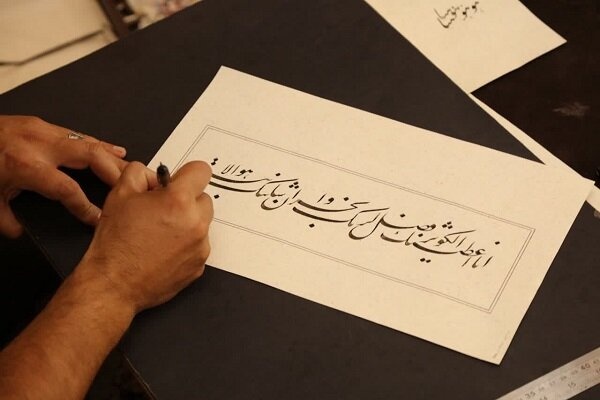 انا اعطیناک الکوثر فصل لربک وانحر ان شانئک هو الا